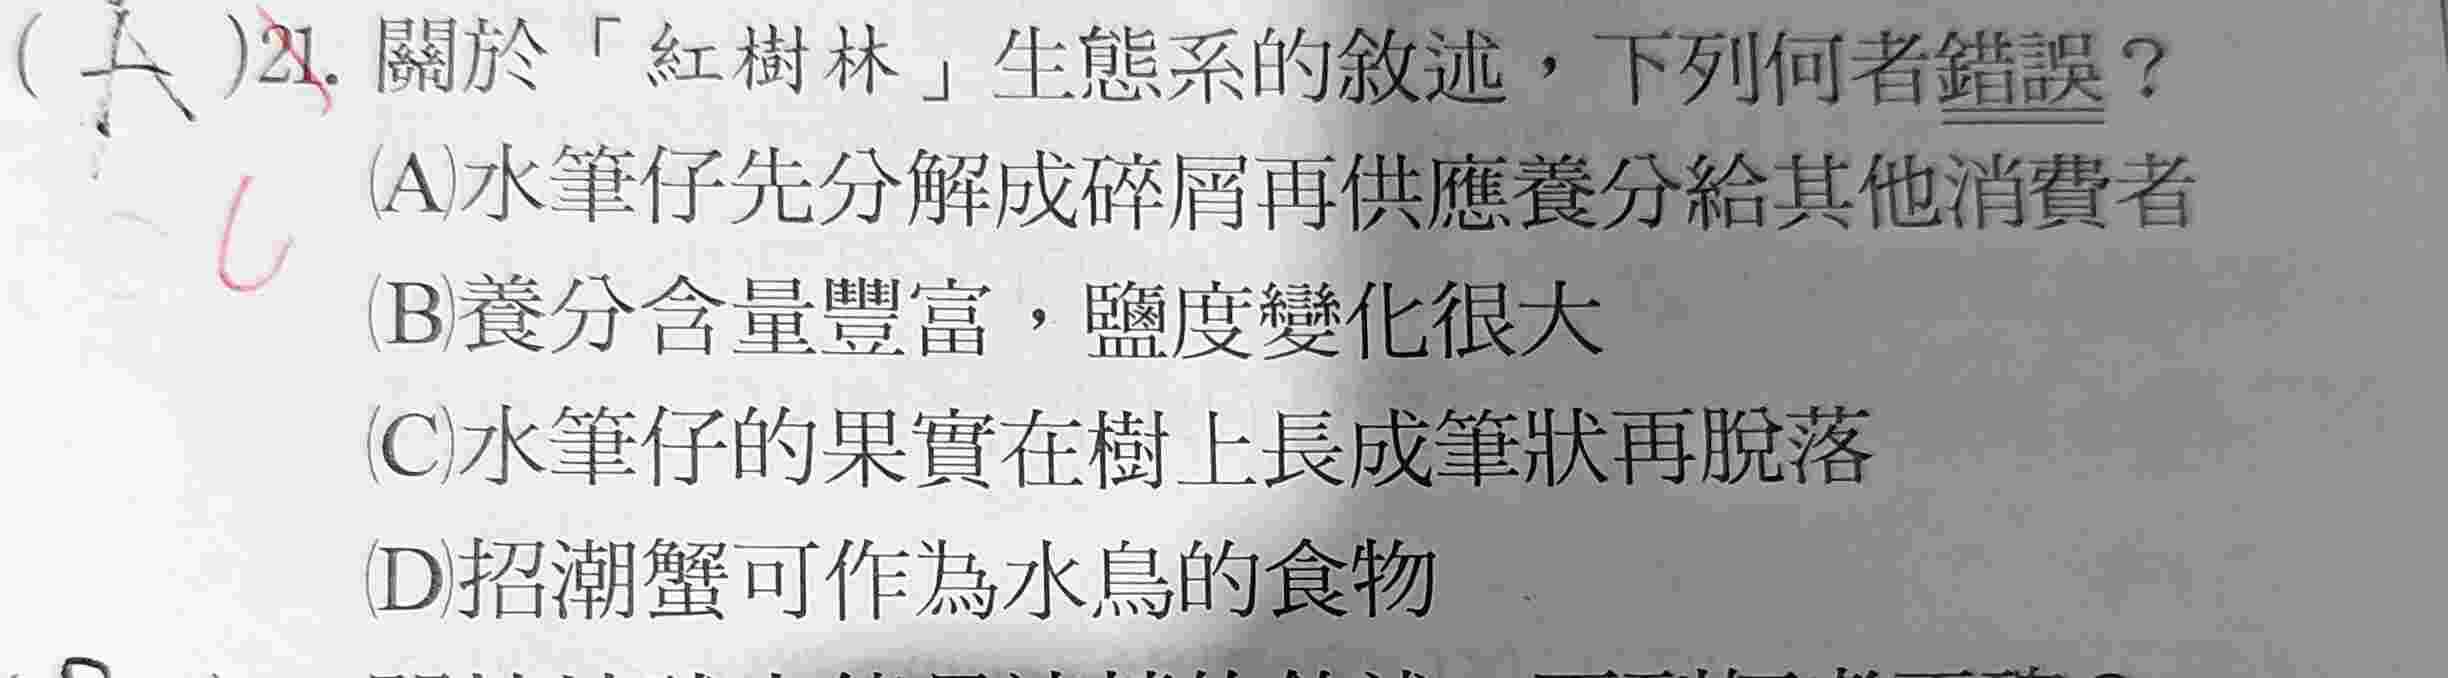 ( A )21. 關於「紅樹林」生態系的敘述，下列何者錯誤？
C
(A)水筆仔先分解成碎屑再供應養分給其他消費者
(B)養分含量豐富，鹽度變化很大
(C)水筆仔的果實在樹上長成筆狀再脫落
(D)招潮蟹可作為水鳥的食物